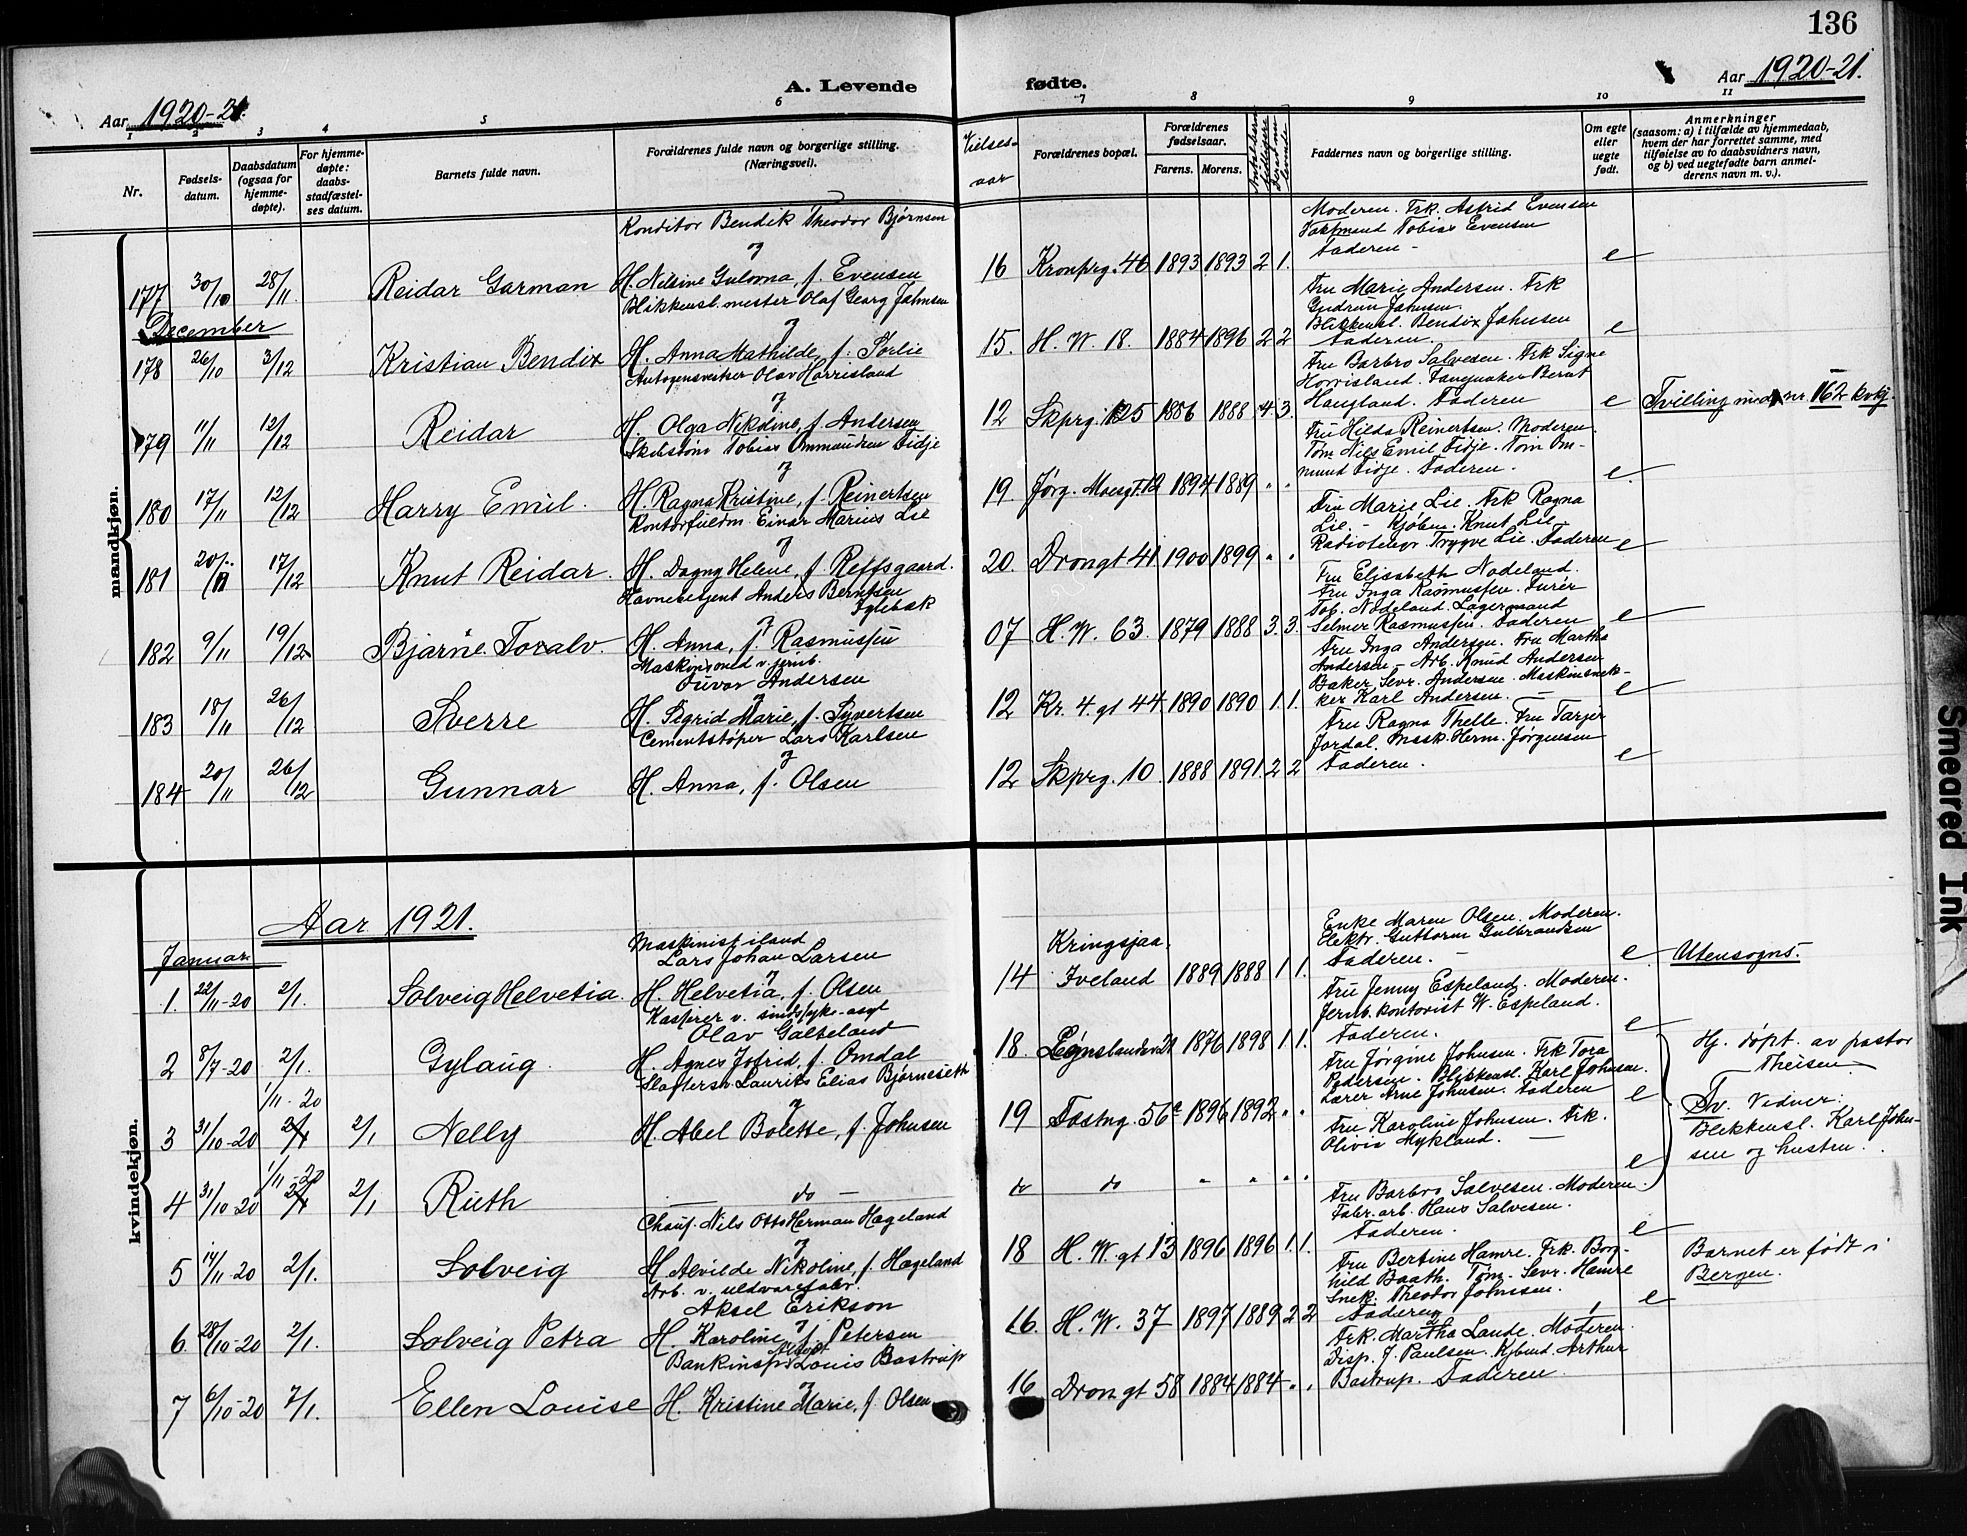 136
A. Levende
fødte.
Aar 1920-21.
Aar 1920-21.
1 2 3 4 5 6 7 8 9 10 11
Nr.
Fødsels-
datum.
Daabsdatum
(ogsaa for
hjemme-
døpte).
For hjemme-
døpte:
daabs-
stadfæstel-
ses datum.
Barnets fulde navn.
Forældrenes fulde navn og borgerlige stilling.
(Næringsvei).
Vielses-
aar
Forældrenes bopæl.
Forældrenes
fødselsaar.
Farens. Morens.
Faddernes navn og borgerlige stilling.
Om egte
eller
uegte
født.
Anmerkninger
(saasom: a) i tilfælde av hjemmedaab,
hvem der har forrettet samme, med
tilføielse av to daabsvidners navn,
og b) ved uegtefødte barn anmel-
derens navn m. v.).
mandkjøn.
Konditor Bendik Theodor Bjørnsen
og
177 30/10 28/11. Reidar Garman H. Nilsine Gulovna, f. Evensen
16 Kronprg. 46 1893 1893 2 1.
Moderen. Frk. Astrid Evensen
Tobias Evensen
Faderen - e
December
Blikkensl. mester Olaf Georg Johnsen
og
178 26/10 3/12 Kristian Bendix H. Anna Mathilde, f. Sørlie
15. H. W. 18. 1884 1896 2 2
Fru Marie Andersen. Frk
Gudrun Johnsen.
Blikkensl. Bendix Johnsen
Faderen. e
Autogensveiser Olav Horrisland
og
179 11/11 12/12 Reidar H. Olga Nikoline, f. Andersen
12 Skprg. 125 1886 1888 4 3.
Fru Barbro Salvesen. Frk Signe
Horrisland. Bernt
Haugland. Faderen e Tvilling med nr. 162 kvkj.
Skibstøm Tobias Ommundsen Fidje
og
180 17/11 12/12 Harry Emil. H. Ragna Kristine, f. Reinertsen
19. Jørg. Moesgt. 12 1894 1889 " "
Fru Hilda Reinertsen. Moderen.
Tøm Nils Emil Fidje. Tøm Om-
mund Fidje. Faderen. e.
Kontorfuldm. Einar Marius Lie
og
181 20/11 17/12 Knut Reidar. H. Dagny Helene, f. Reffsgaard.
20. Drongt 41 1900 1899 " "
Fru Marie Lie. Frk Ragna
Lie. - Kjøbm. Knut Lie
Radiotelegr. Trygve Lie. Faderen e
Havnebetjent Anders Berntsen
Iglebæk
og
182 9/11 19/12 Bjarne Toralv. H. Anna, f. Rasmussen
07 H. W. 63. 1879 1888 3. 3.
Fru Elisabeth Nodeland.
Fru Inga Rasmussen. Furér
Tob. Nodeland. Lagermand
Selmer Rasmussen. Faderen e
Maskinsmed v. jernb.
Andersen
og
183 18/11 26/12 Sverre H. Sigrid Marie, f. Syvertsen
12 Kr. 4. gt 44 1890 1890 1. 1.
Fru Inga Andersen. Fru Martha
Andersen - Arb. Knud Andersen
Baker Sevr. Andersen. Maskinsnek-
ker Karl Andersen. - e
Cementstøper Lars Karlsen
og
184 20/11 26/12 Gunnar H. Anna, f. Olsen
12 Skprg. 10. 1888 1891. 2 2
Fru Ragna Thelle. Fru Tarjer
Jordal. Mask. Herm. Jørgensen
Faderen. e
kvindekjøn.
Aar 1921.
Januar
Maskinist iland
Lars Johan Larsen
og
1. 22/11-20 2/1. Solveig Helvetia. H. Helvetia, f. Olsen
Kringsjaa.
14 Iveland 1889 1888 1. 1.
Enke Maren Olsen. Moderen.
Elektr. Guttorm Gulbrandsen
Faderen. - e Utensogns.
Kasserer v. sindssyke-asyl
Olav Galteland
2 8/7-20 2/1. Gylaug. H. Agnes Jofrid, f. Omdal
18. 21 1876 1898 1. 1.
Fru Jenny Espeland. Moderen.
Jernb. kontorist W. Espeland.
Faderen. e
Slaktersv. Laurits Elias Bjørneseth
og
1/11-20
3 31/10-20 2/1 2/1 Nelly H. Abel Bolette, f. Johnsen
19 Tostng. 56c 1896 1892 " "
Fru Jørgine Johnsen. Frk Tora
Pedersen. Blikkensl. Karl Johnsen.
Lærer Arne Johnsen. Faderen e
Hj. døpt. av pastor
Theisen
Tv. Vidner:
Blikkensl. Karl John-
sen og hustru.
1/11-20
4 31/10-20 2/1 2/1 Ruth - do -
do do " " " "
Fru Karoline Johnsen. Frk.
Olivia Mykland. - e
Chauf. Nils Otto Herman Hægeland
og
5 14/11-20 2/1. Solveig H. Alvilde Nikoline, f. Hægeland
18 H. W. gt 13 1896 1896 1. 1.
Fru Barbro Salvesen. Moderen.
Fabr. arb. Hans Salvesen.
Faderen. e
Barnet er født i
Bergen.
Arb. v. uldvarefabr.
Aksel Erikson
og
6 28/10-20 2/1. Solveig Petra H. Karoline, f. Petersen
16. H. W. 37 1897 1889 2 2
Fru Bertine Hamre. Frk. Borg-
hild Baath. Tøm. Sevr. Hamre
Snek. Theodor Johnsen.
Faderen e
Bankinsp. Louis Bastrup
og
7 6/10-20 2/1. Ellen Louise H. Kristine Marie, f. Olsen
16 Drongt 58 1884 1884 " "
Frk. Martha Lande. Moderen.
Disp. J. Paulsen. Kjbmd. Arthur
Bastrup. Faderen.
Smeared Ink